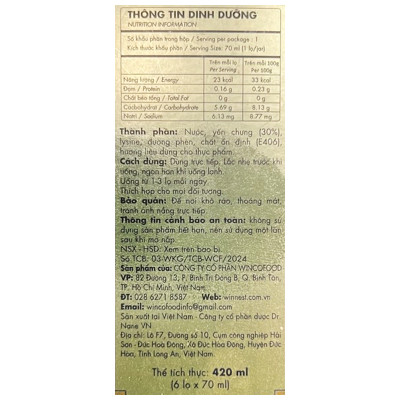 THÔNG TIN DINH DƯỠNG
NUTRITION INFORMATION
Số khẩu phần trong hộp / Serving per package : 1
Kích thước khẩu phần / Serving Size: 70 ml (1 lọ/jar)
Trên mỗi lọ Per Serving
Trên mỗi 100g Per 100g
Năng lượng / Energy 23 kcal 33 kcal
Đạm / Protein 0.16 g 0.23 g
Chất béo tổng / Total Fat 0 g 0 g
Carbohydrat / Carbohydrate 5.69 g 8.13 g
Natri / Sodium 6.13 mg 8.77 mg
Thành phần: Nước, yến chưng (30%),
lysine, đường phèn, chất ổn định (E406),
hương liệu dùng cho thực phẩm
Cách dùng: Dùng trực tiếp. Lắc nhẹ trước khi
uống, ngon hơn khi uống lạnh.
Uống từ 1-3 lọ mỗi ngày.
Thích hợp cho mọi đối tượng.
Bảo quản: Để nơi khô ráo, thoáng mát,
tránh ánh nắng trực tiếp.
Thông tin cảnh báo an toàn: không sử
dụng sản phẩm hết hạn, nên sử dụng một lần
sau khi mở nắp.
NSX - HSD: Xem trên bao bì.
Số TCB: 03-WKG/TCB-WCF/2024
Sản phẩm của: CÔNG TY CỔ PHẦN WINCOFOOD
VP: 82 Đường 13, P. Bình Trị Đông B, Q. Bình Tân,
TP. Hồ Chí Minh, Việt Nam.
ĐT: 028 6271 8587 Web: winnest.com.vn
Email: wincofoodinfo@gmail.com
Sản xuất tại Việt Nam - Công ty cổ phần dược Dr.
Nane VN
Địa chỉ: Lô F7, Đường số 10, Cụm công nghiệp Hải
Sơn - Đức Hoà Đông, Xã Đức Hòa Đông, Huyện Đức
Hòa, Tỉnh Long An, Việt Nam.
Thể tích thực: 420 ml
(6 lọ x 70 ml)